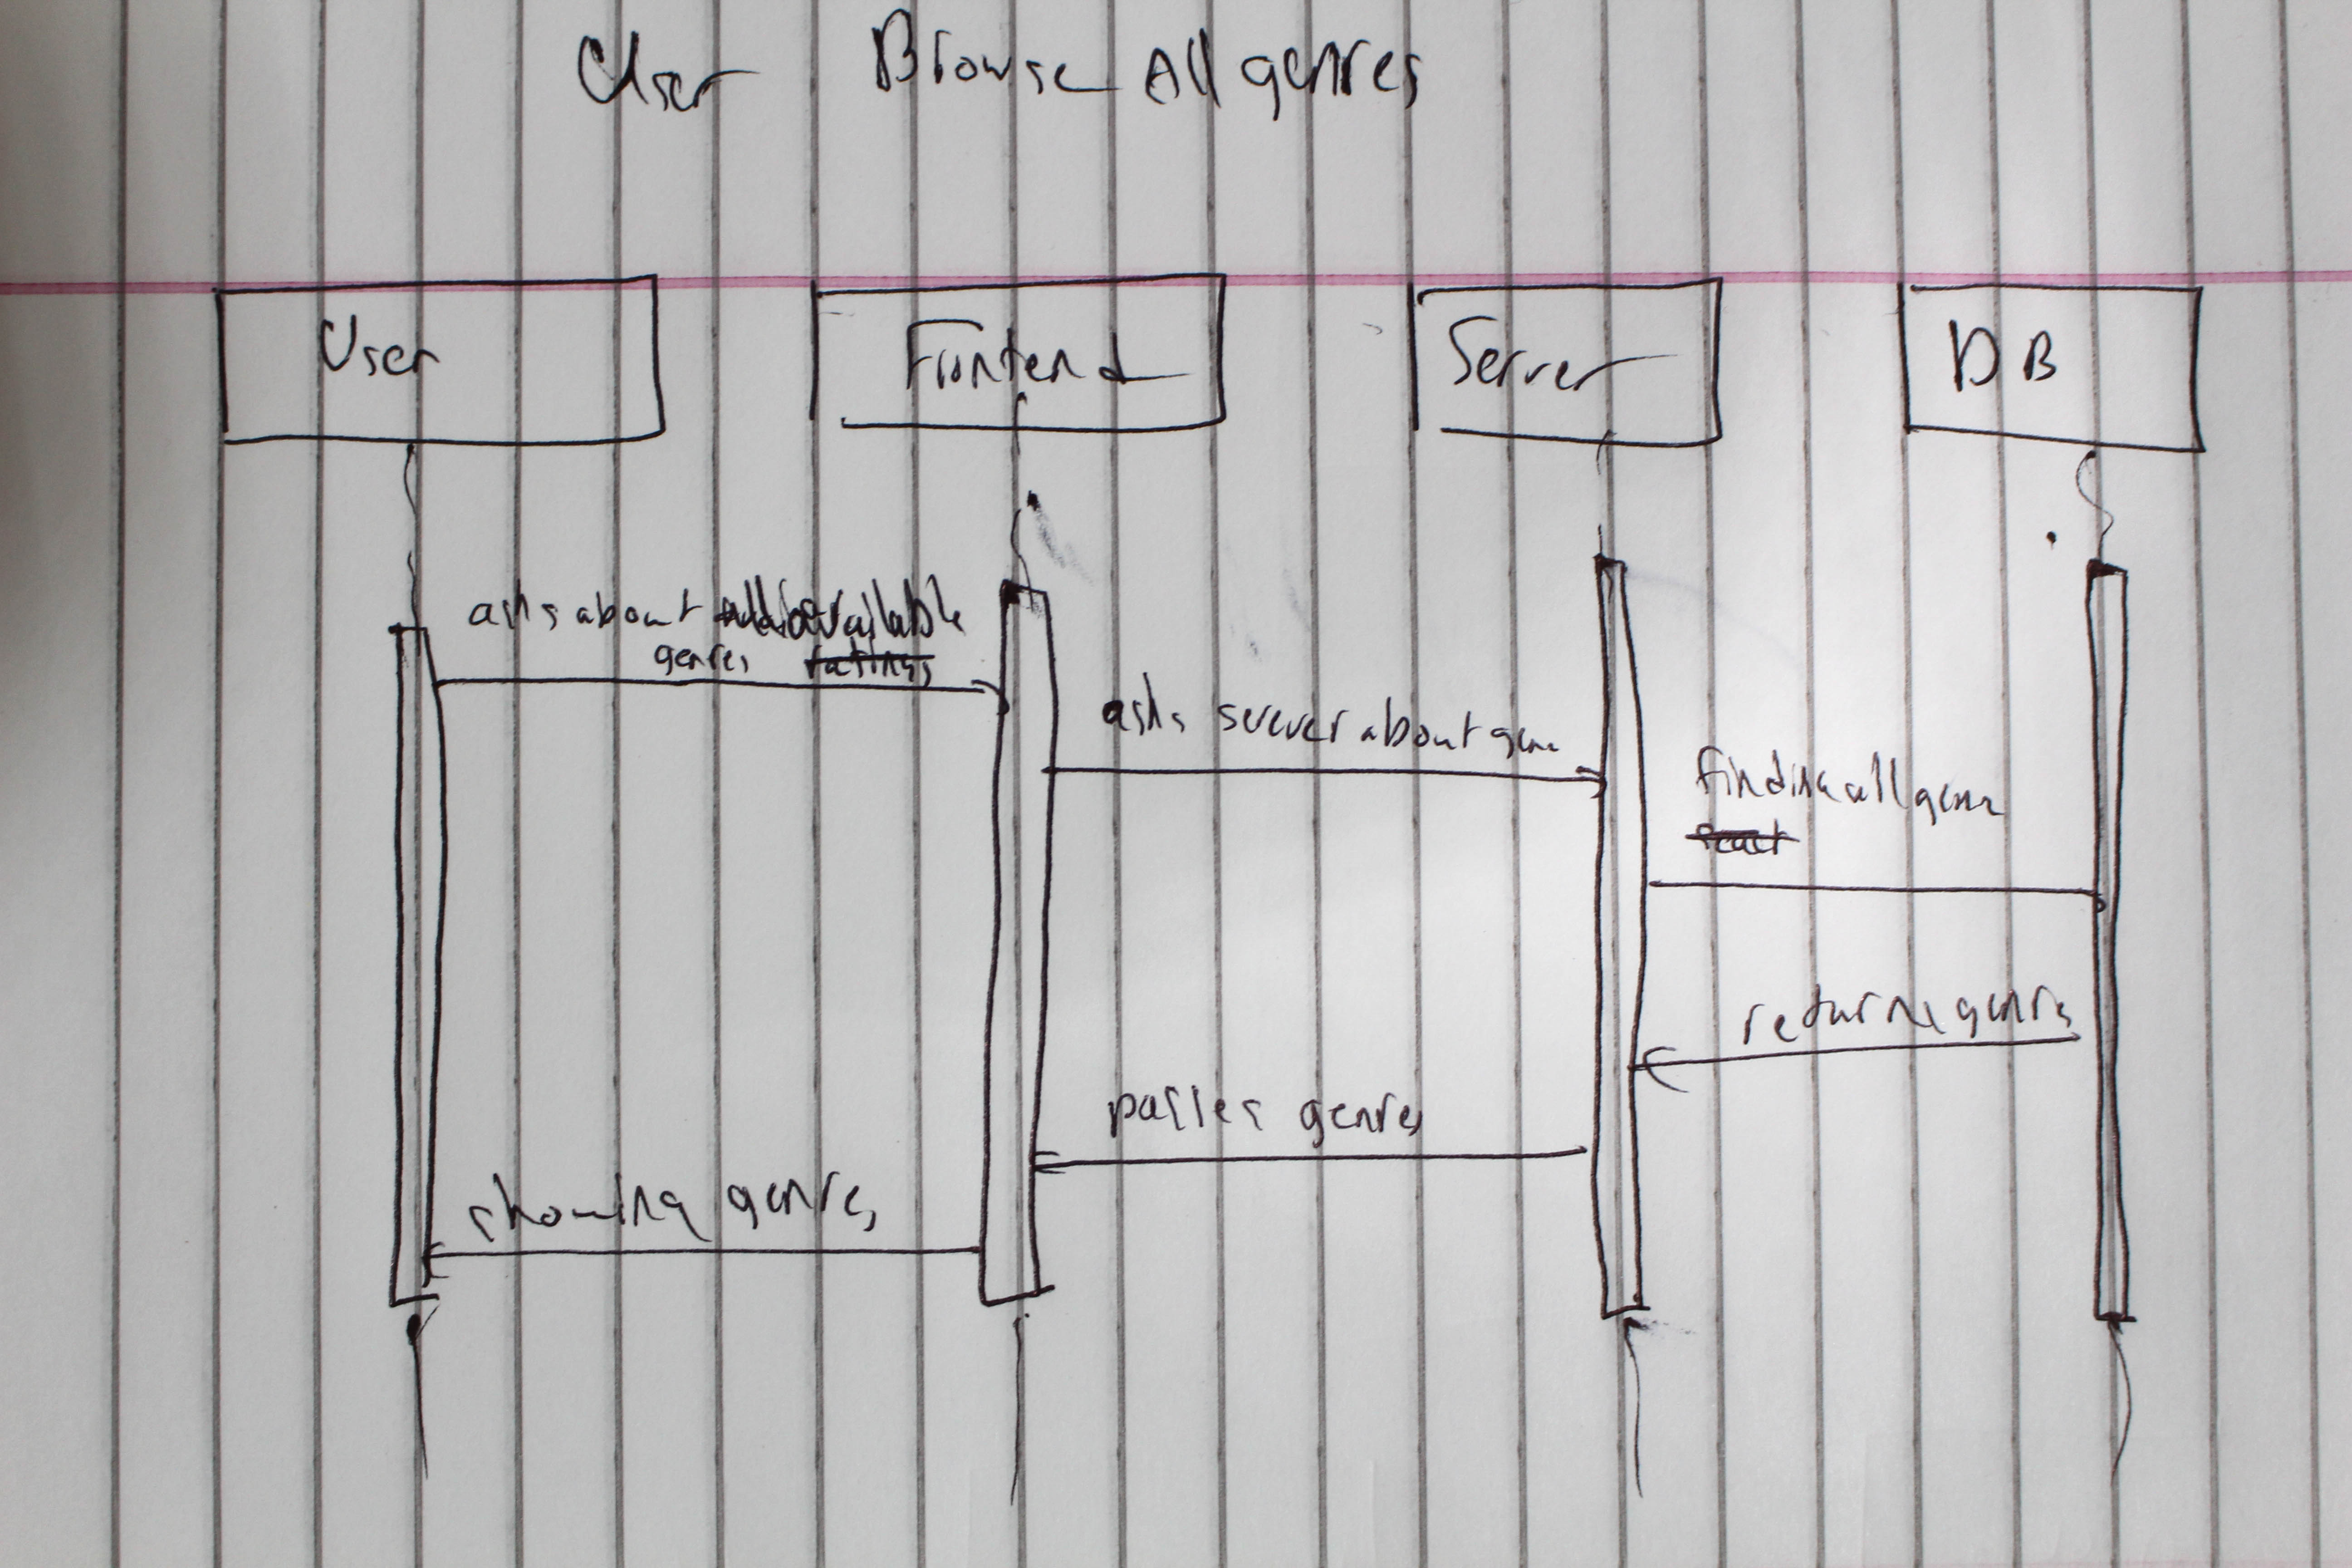 User Browse All genres
User Frontend Server DB
asks about available
genres ratings
asks server about genre
finding all genre
returns genres
passes genres
showing genres